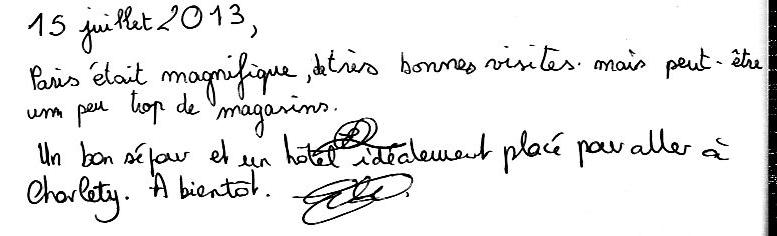 15 juillet 2013,
Paris était magnifique, de très bonnes visites. mais peut-être
un peu trop de magasins.
Un bon séjour et un hôtel idéalement placé pour aller à
Charlety. A bientôt.